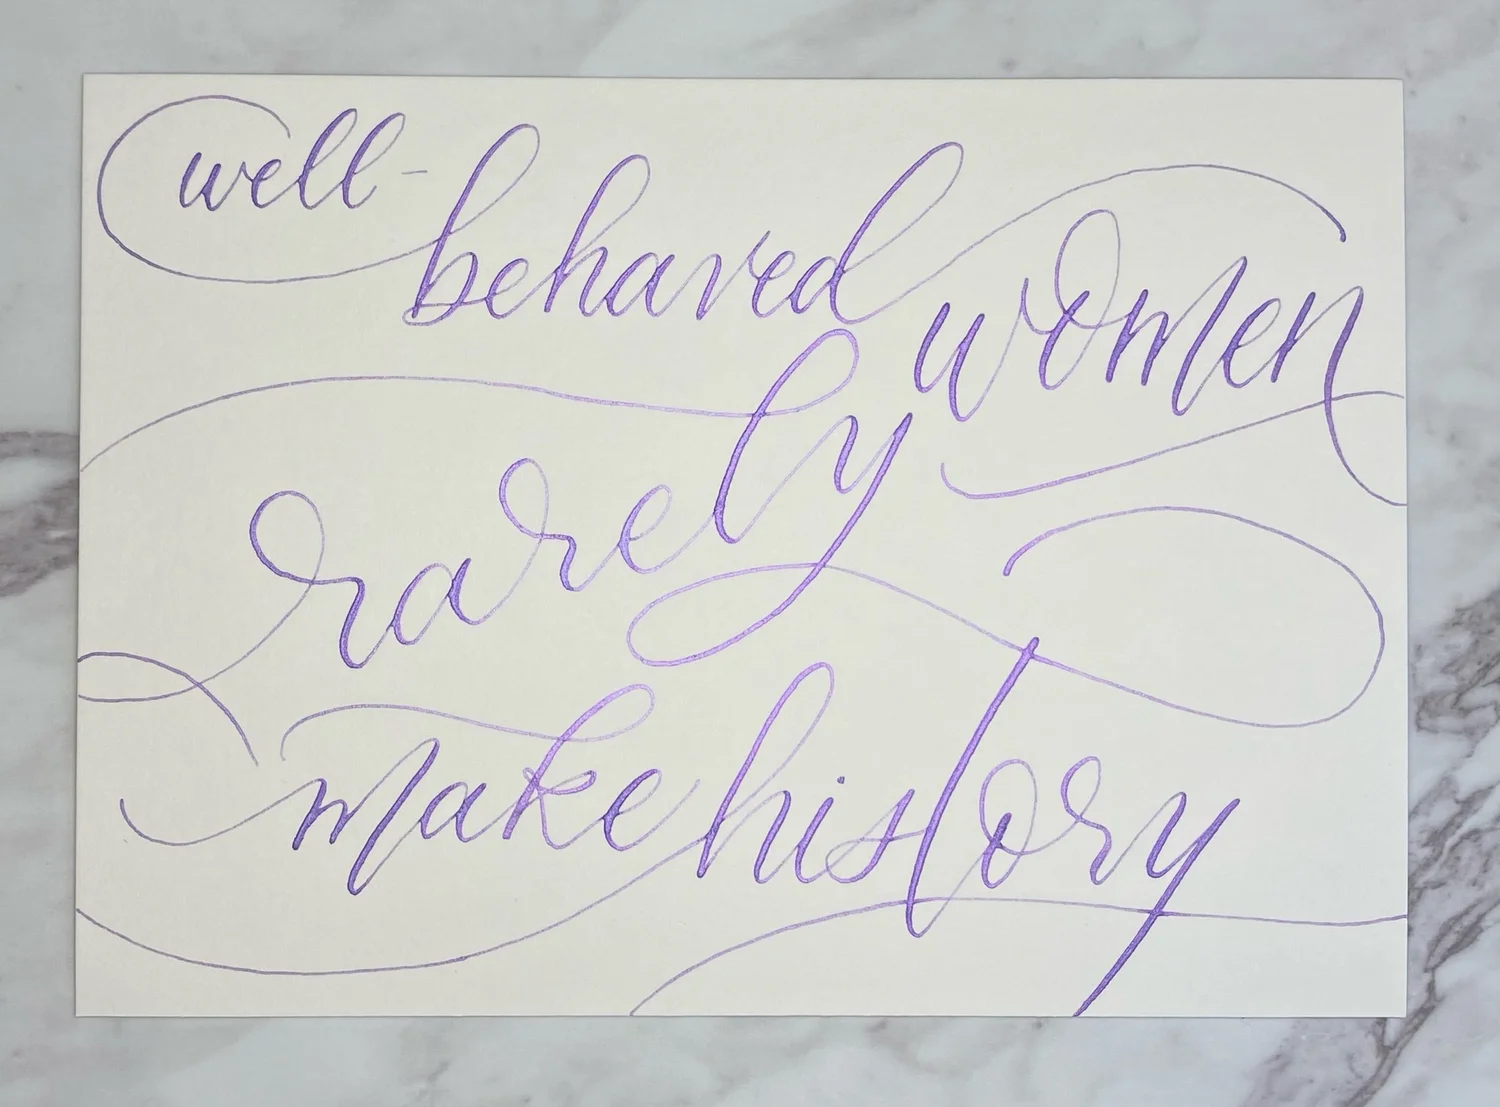 well-
behaved women
rarely
make history